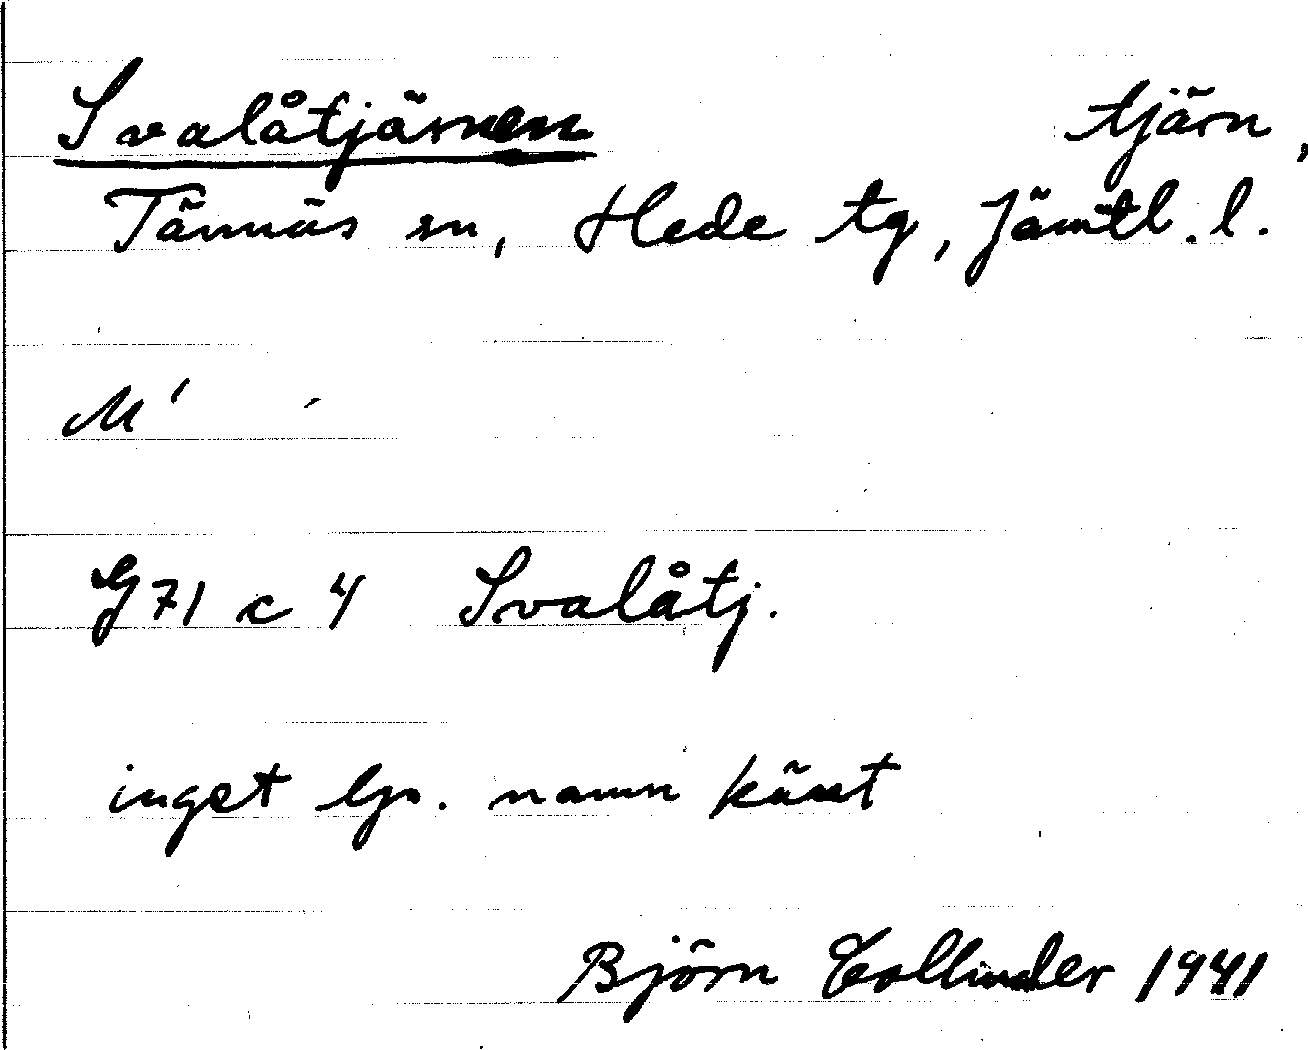 Svalåtjärnen tjärn,
Tännäs sn, Hede tg, Jämtl. l.
M'
G 71 c 4 Svalåtj.
inget lp. namn känt
Björn Collinder 1941